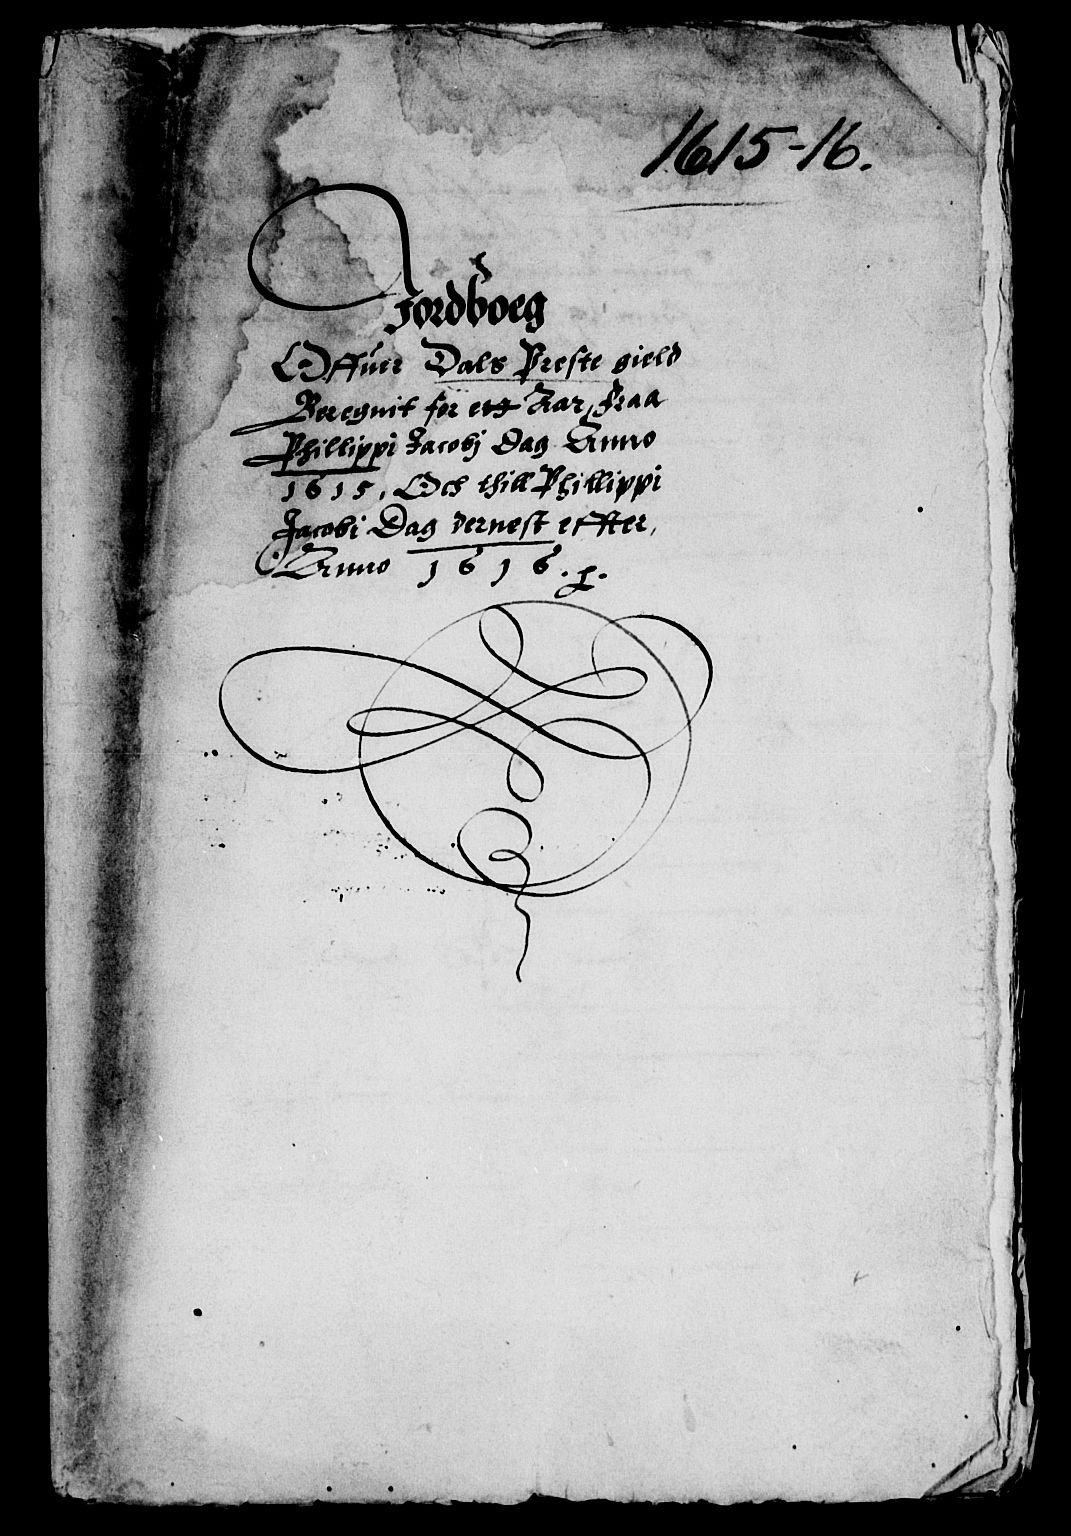 1615-16.
Jordboeg
Offuer Dals Preste gield
Beregnit for ett Aar, fraa
Phillippi Jacobj Dag Anno
1615, Och thill Phillippi
Jacobi Dag dernest effter,
Anno 1616.